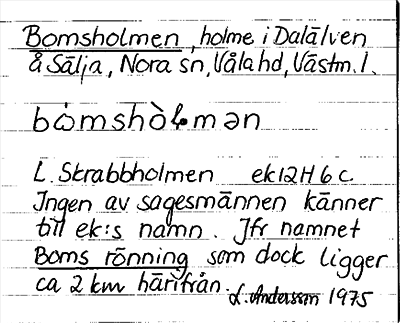 Bomsholmen, holme i Dalälven
å Sälja, Nora sn, Våla hd, Västm. l.
bòmshòlmən
L. Skrabbholmen ek12H6c
Ingen av sagesmännen känner
till ek:s namn. Jfr namnet
Boms rönning som dock ligger
ca 2 km härifrån. L. Andersson 1975